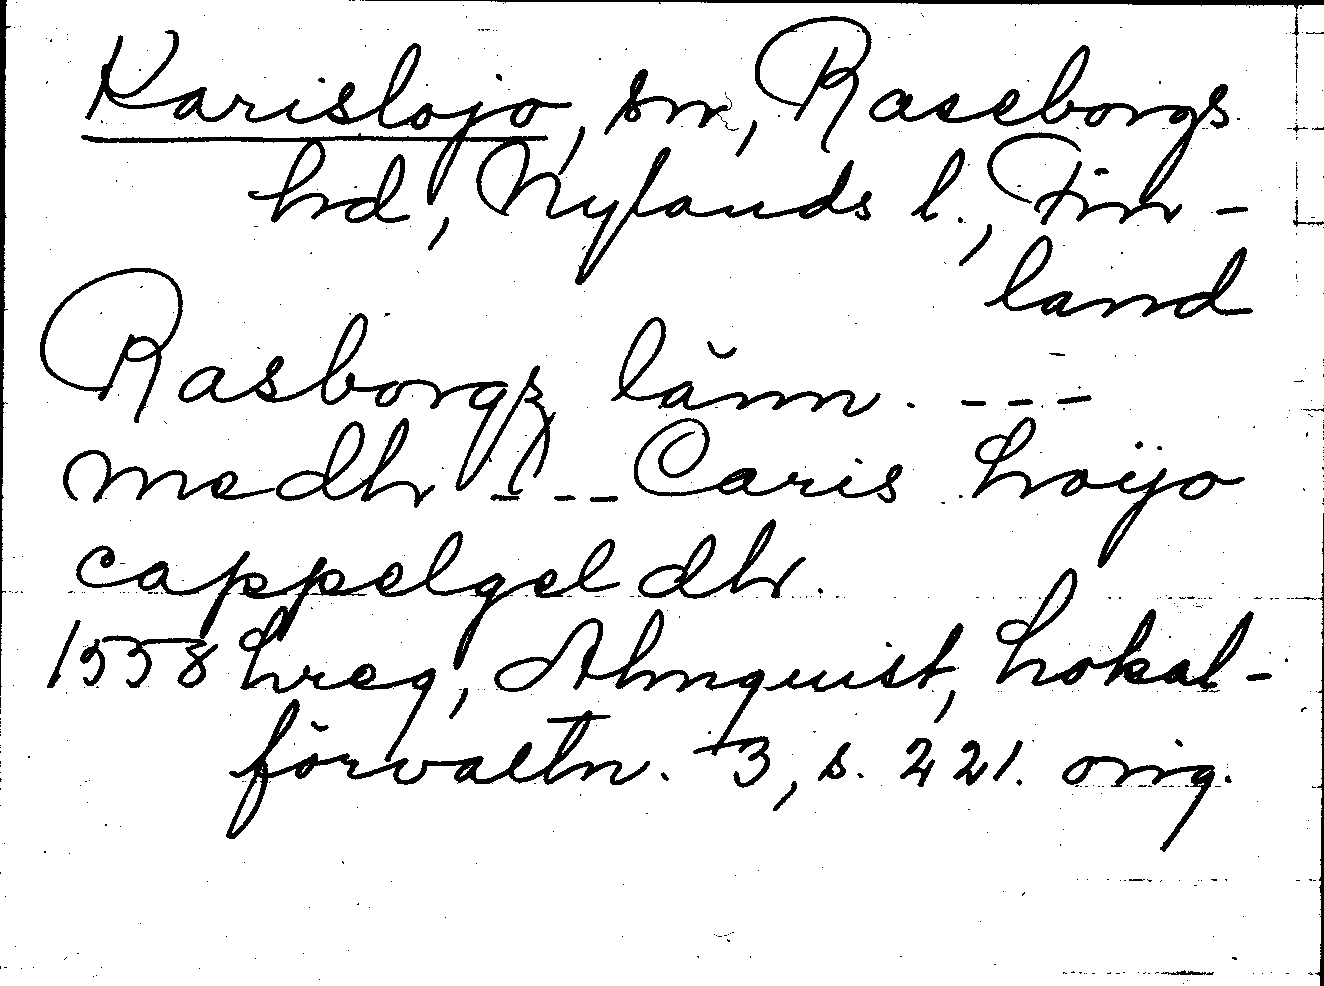 Karislojo, sn, Raseborgs
hd, Nylands l., Fin-
land
Rasborgz länn. ---
medh --- Caris Loijo
cappelgeldh.
1558 Lreg, Almquist, Lokal-
förvaltn. 3, s. 221. orig.